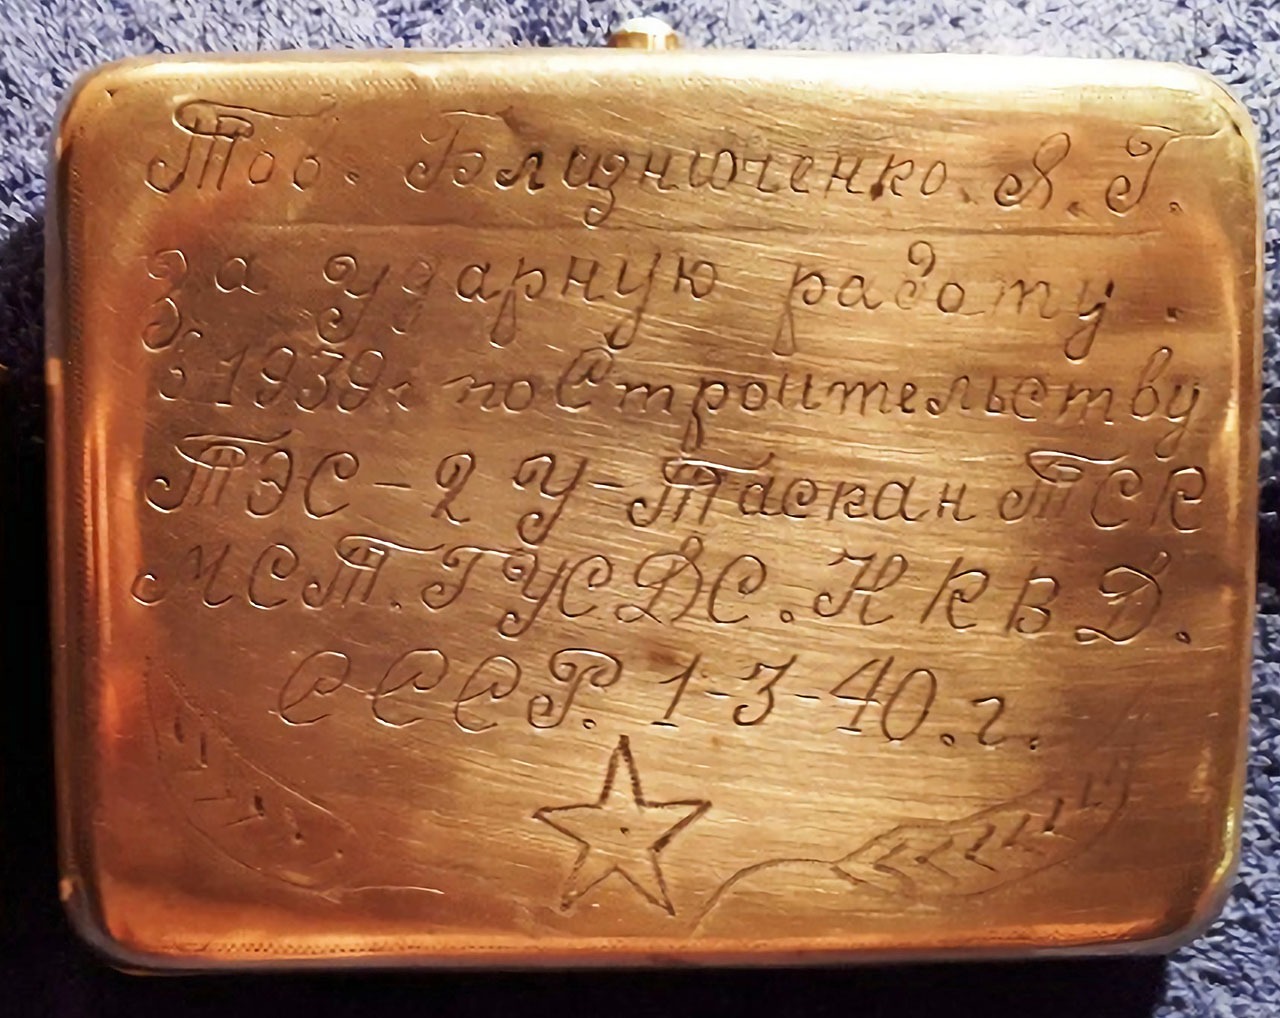 Тов. Близнюченко. Я. Г.
За ударную работу.
в 1939г по Строительству
ТЭС-2 У-Таскан ТСК
УСТ. ГУСДС. НКВД.
СССР. 1-3-40.г.